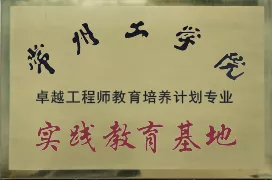 常州工学院
卓越工程师教育培养计划专业
实践教育基地